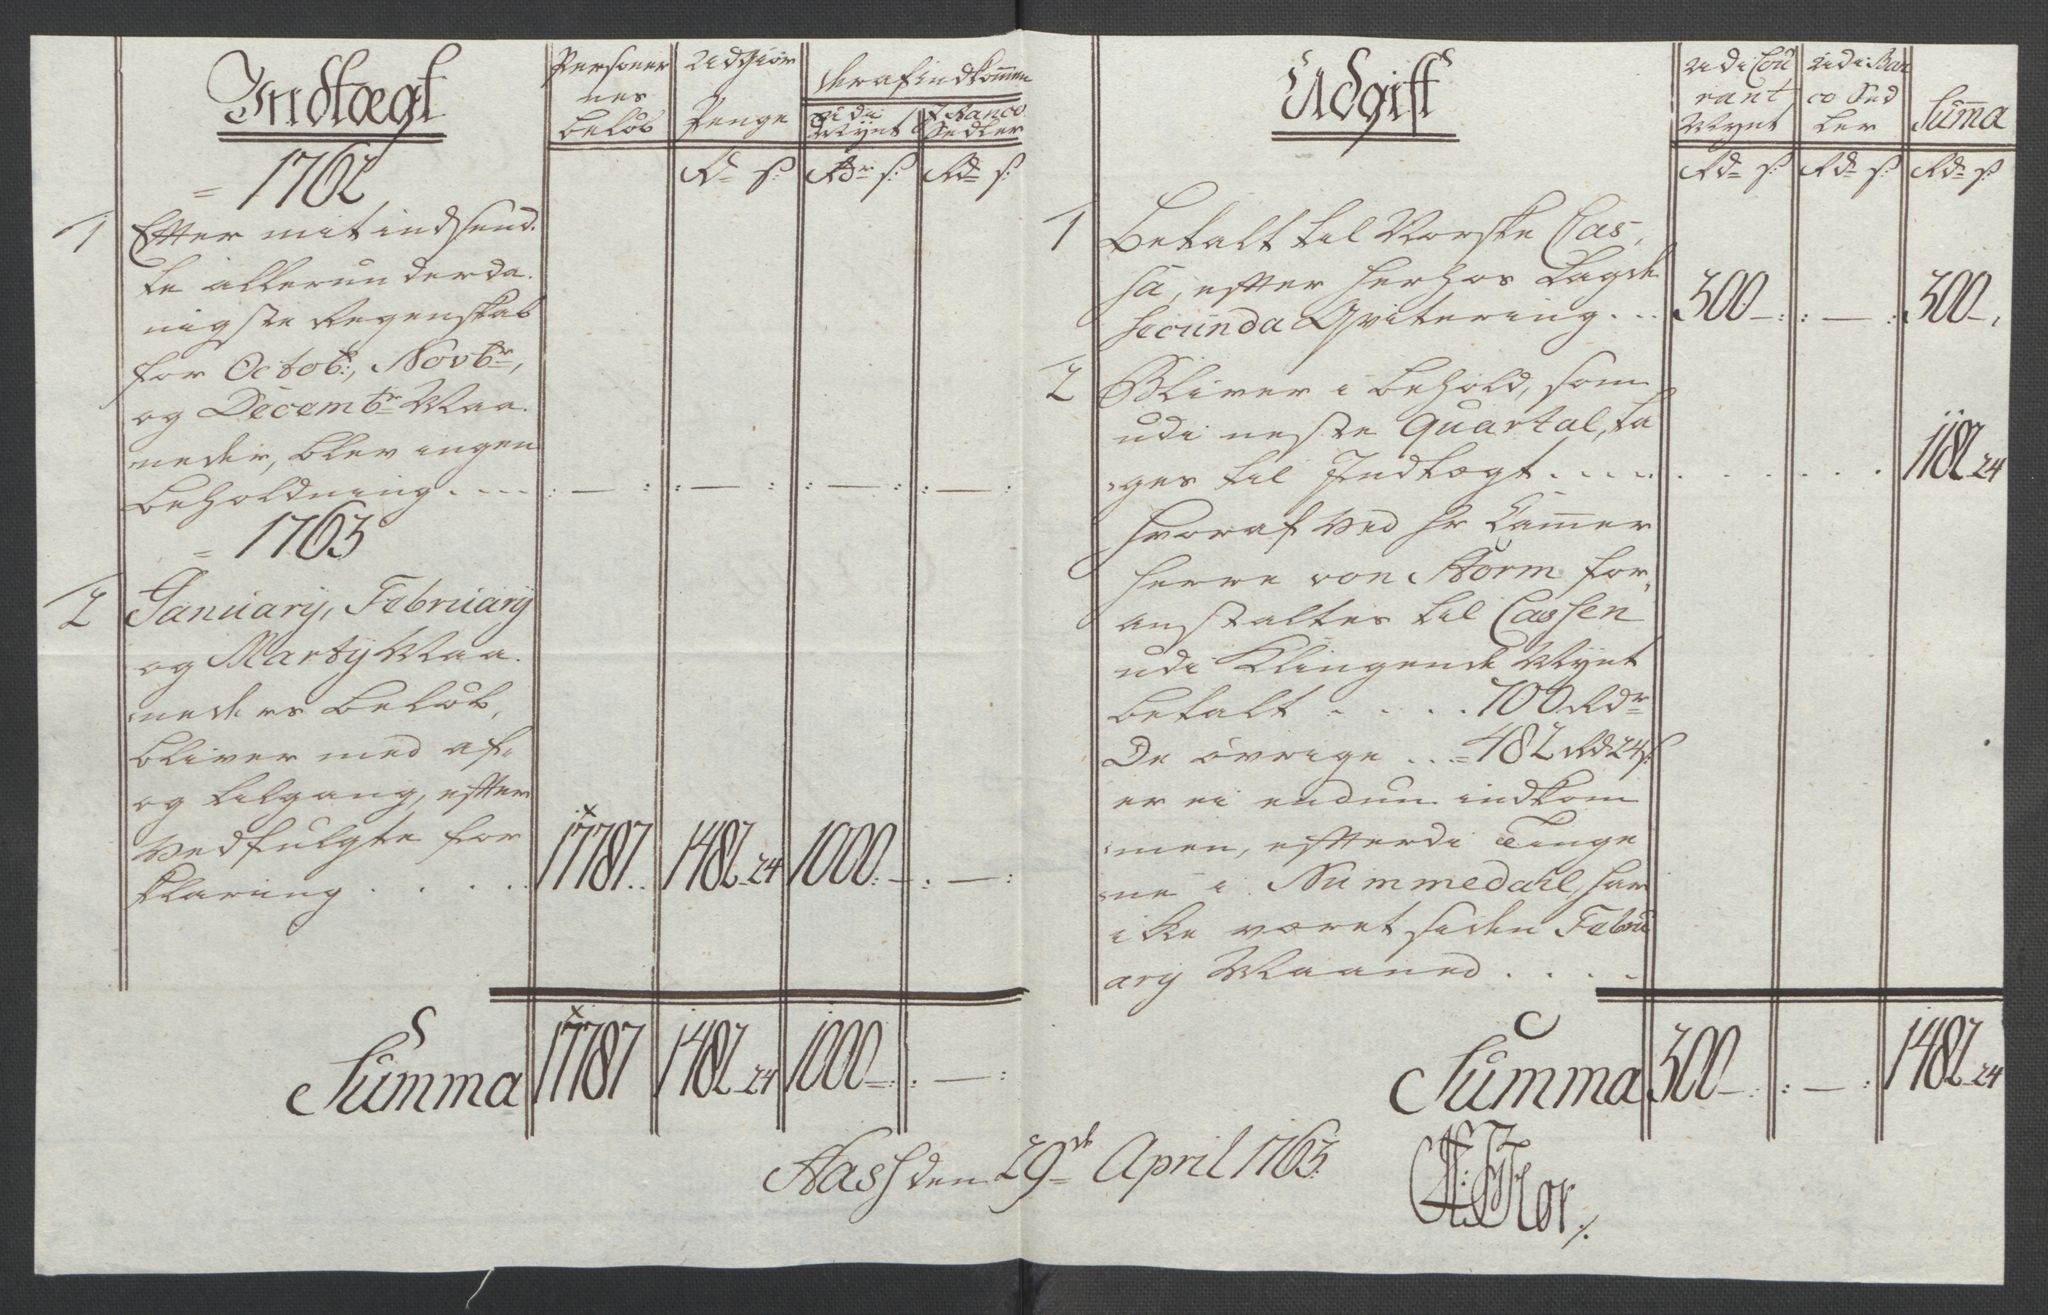 Indtægt
Personer
nes
beløb
Udgiør
Penge
Rd s:
deraf indkommen
udi
Mynt
Rdr s:
I Banco
Sedler
Rd s:
= 1762
1 Efter mit indsend.
te allerunderda.
nigste Regenskab
for Octob:, Novbr,
og Decembr Maa.
neder, blev ingen
beholdning . . . . : — : : — : : — : : — :
= 1763
2 Januarij, Februarij
og Martij Maa.
neders beløb,
bliver med af,
og tilgang, efter
Vedfulgte for
klaring . . . . . 17787. 1482 24 1000 — . — :
Summa 17787 1482 24 1000 — : — :
Udgift
udi Cou
rant
Mynt
Rd s:
udi Ban
co Sed
ler
Rd s:
Summa
Rd s:
1 Betalt til Norske Cas,
sa, efter herhos Lagde
secunda Qvitering . . . 300 — : — : 300 — .
2 Bliver i behold, som
udi neste Quartal, ta
ges til Indtægt . . . . . . . . . 1182 24
hvoraf ved hr Cammer
herre von Storm for,
anstaltes til Cassen
udi Klingende Mynt
betalt . . . . 700 Rdr
De øvrige . . = 482 Rd 24 s:
er ei endnu indkom
men, efterdi Tinge
ne i Nummedall, har
ikke været siden Febru
arij Maaned . . . .
Summa 300 — : — : 1482 24
Aass den 29de April 1763.